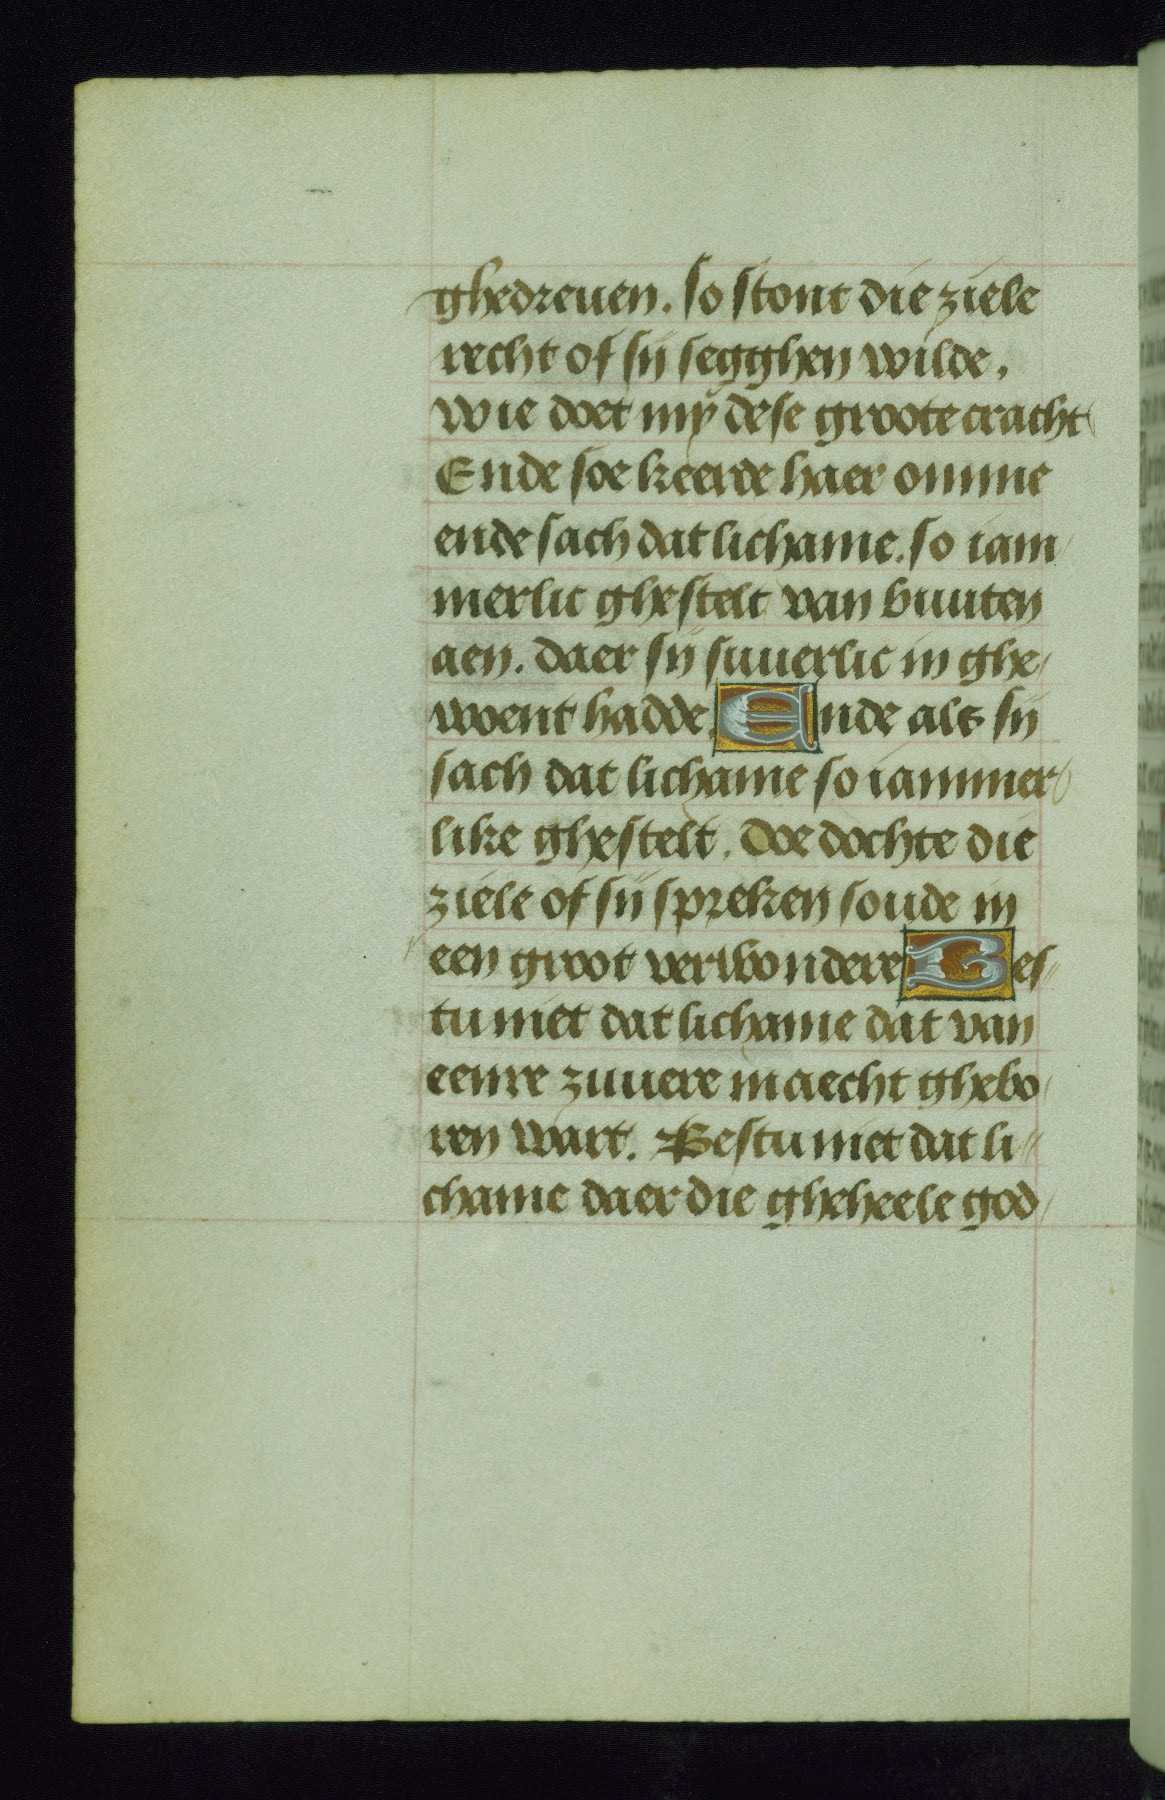 ghedreuen. so stont die ziele
recht of sij segghen wilde.
wie doet mÿ dese groote cracht
Ende soe keerde haer omme
ende sach dat lichame. so iam
merlic ghestelt van buuten
aen. daer sij suuerlic in ghe
woent hadde. Ende als sij
sach dat lichame so iammer
like ghestelt. doe dochte die
ziele of sij spreken soude in
een groot verwondere Bes
tu niet dat lichame dat van
eenre zuuere maecht ghebo
ren wart. Bestu niet dat li
chame daer die gheheele god